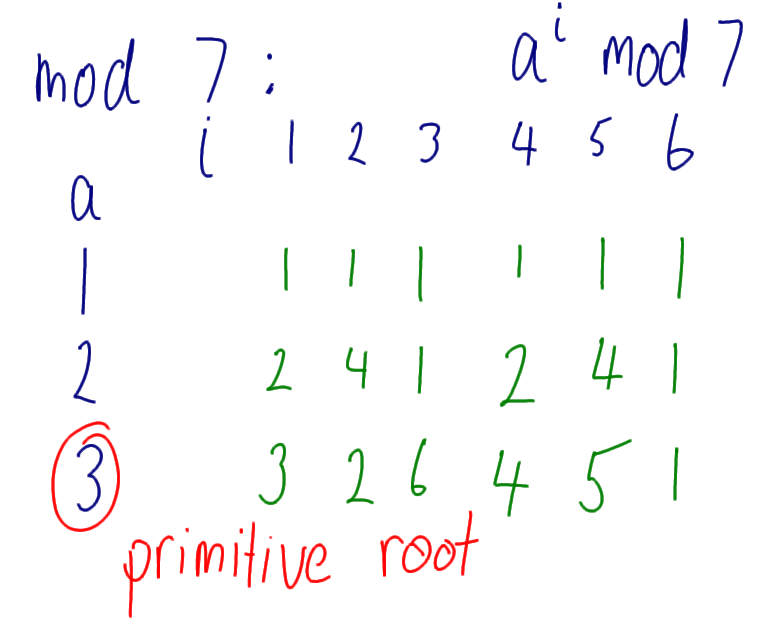 mod 7: aⁱ mod 7
i 1 2 3 4 5 6
a
1 1 1 1 1 1 1
2 2 4 1 2 4 1
3 3 2 6 4 5 1
primitive root